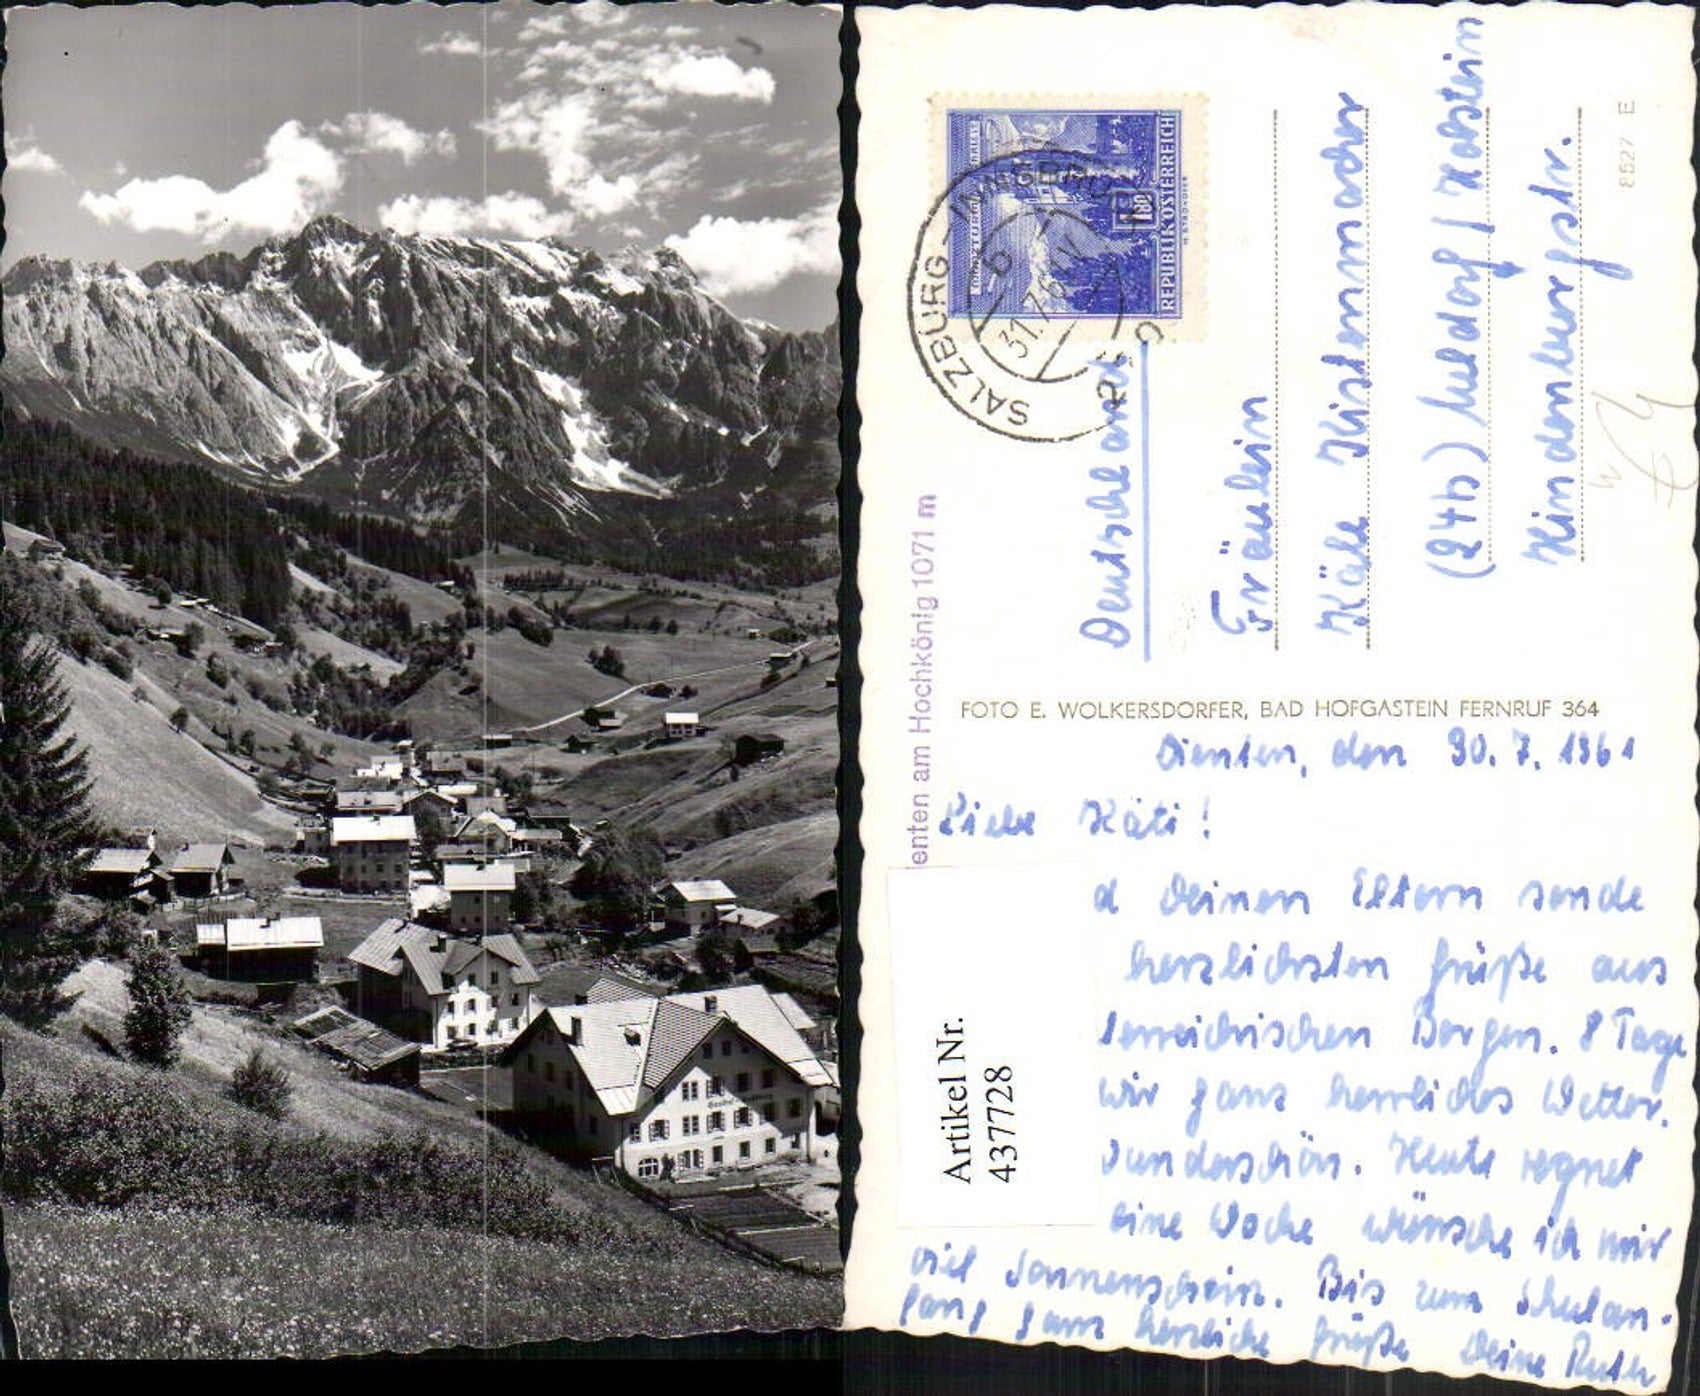 REPUBLIK ÖSTERREICH
1.80
SALZBURG - INNSBRUCK
31.7.61
Deutschland
Fräulein
Käte Kistenmacher
(24b) Meldorf / Holstein
Hindenburgstr.
8527 E
enten am Hochkönig 1071 m
FOTO E. WOLKERSDORFER, BAD HOFGASTEIN FERNRUF 364
Dienten, den 30. 7. 1961
Liebe Käti!
d Deinen Eltern sende
herzlichsten Grüße aus
terreichischen Bergen. 8 Tage
wir ganz herrliches Wetter.
wunderschön. Heute regnet
eine Woche wünsche ich mir
viel Sonnenschein. Bis zum Schulan-
fang ganz herzliche Grüße Deine
Artikel Nr.
437728